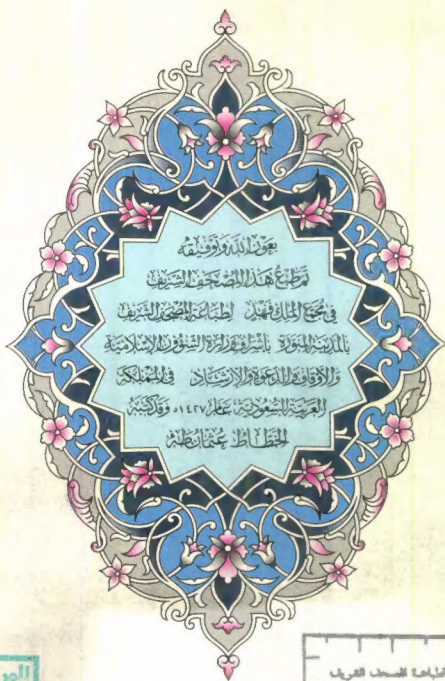 بعون الله وتوفيقه
تم طبع هذا المصحف الشريف
في مجمع الملك فهد لطباعة المصحف الشريف
بالمدينة المنورة بإشراف وزارة الشؤون الإسلامية
والأوقاف والدعوة والإرشاد في المملكة
العربية السعودية عام ١٤٢٧هـ وقد كتبه
الخطاط عثمان طه
لطباعة المصحف الشريف